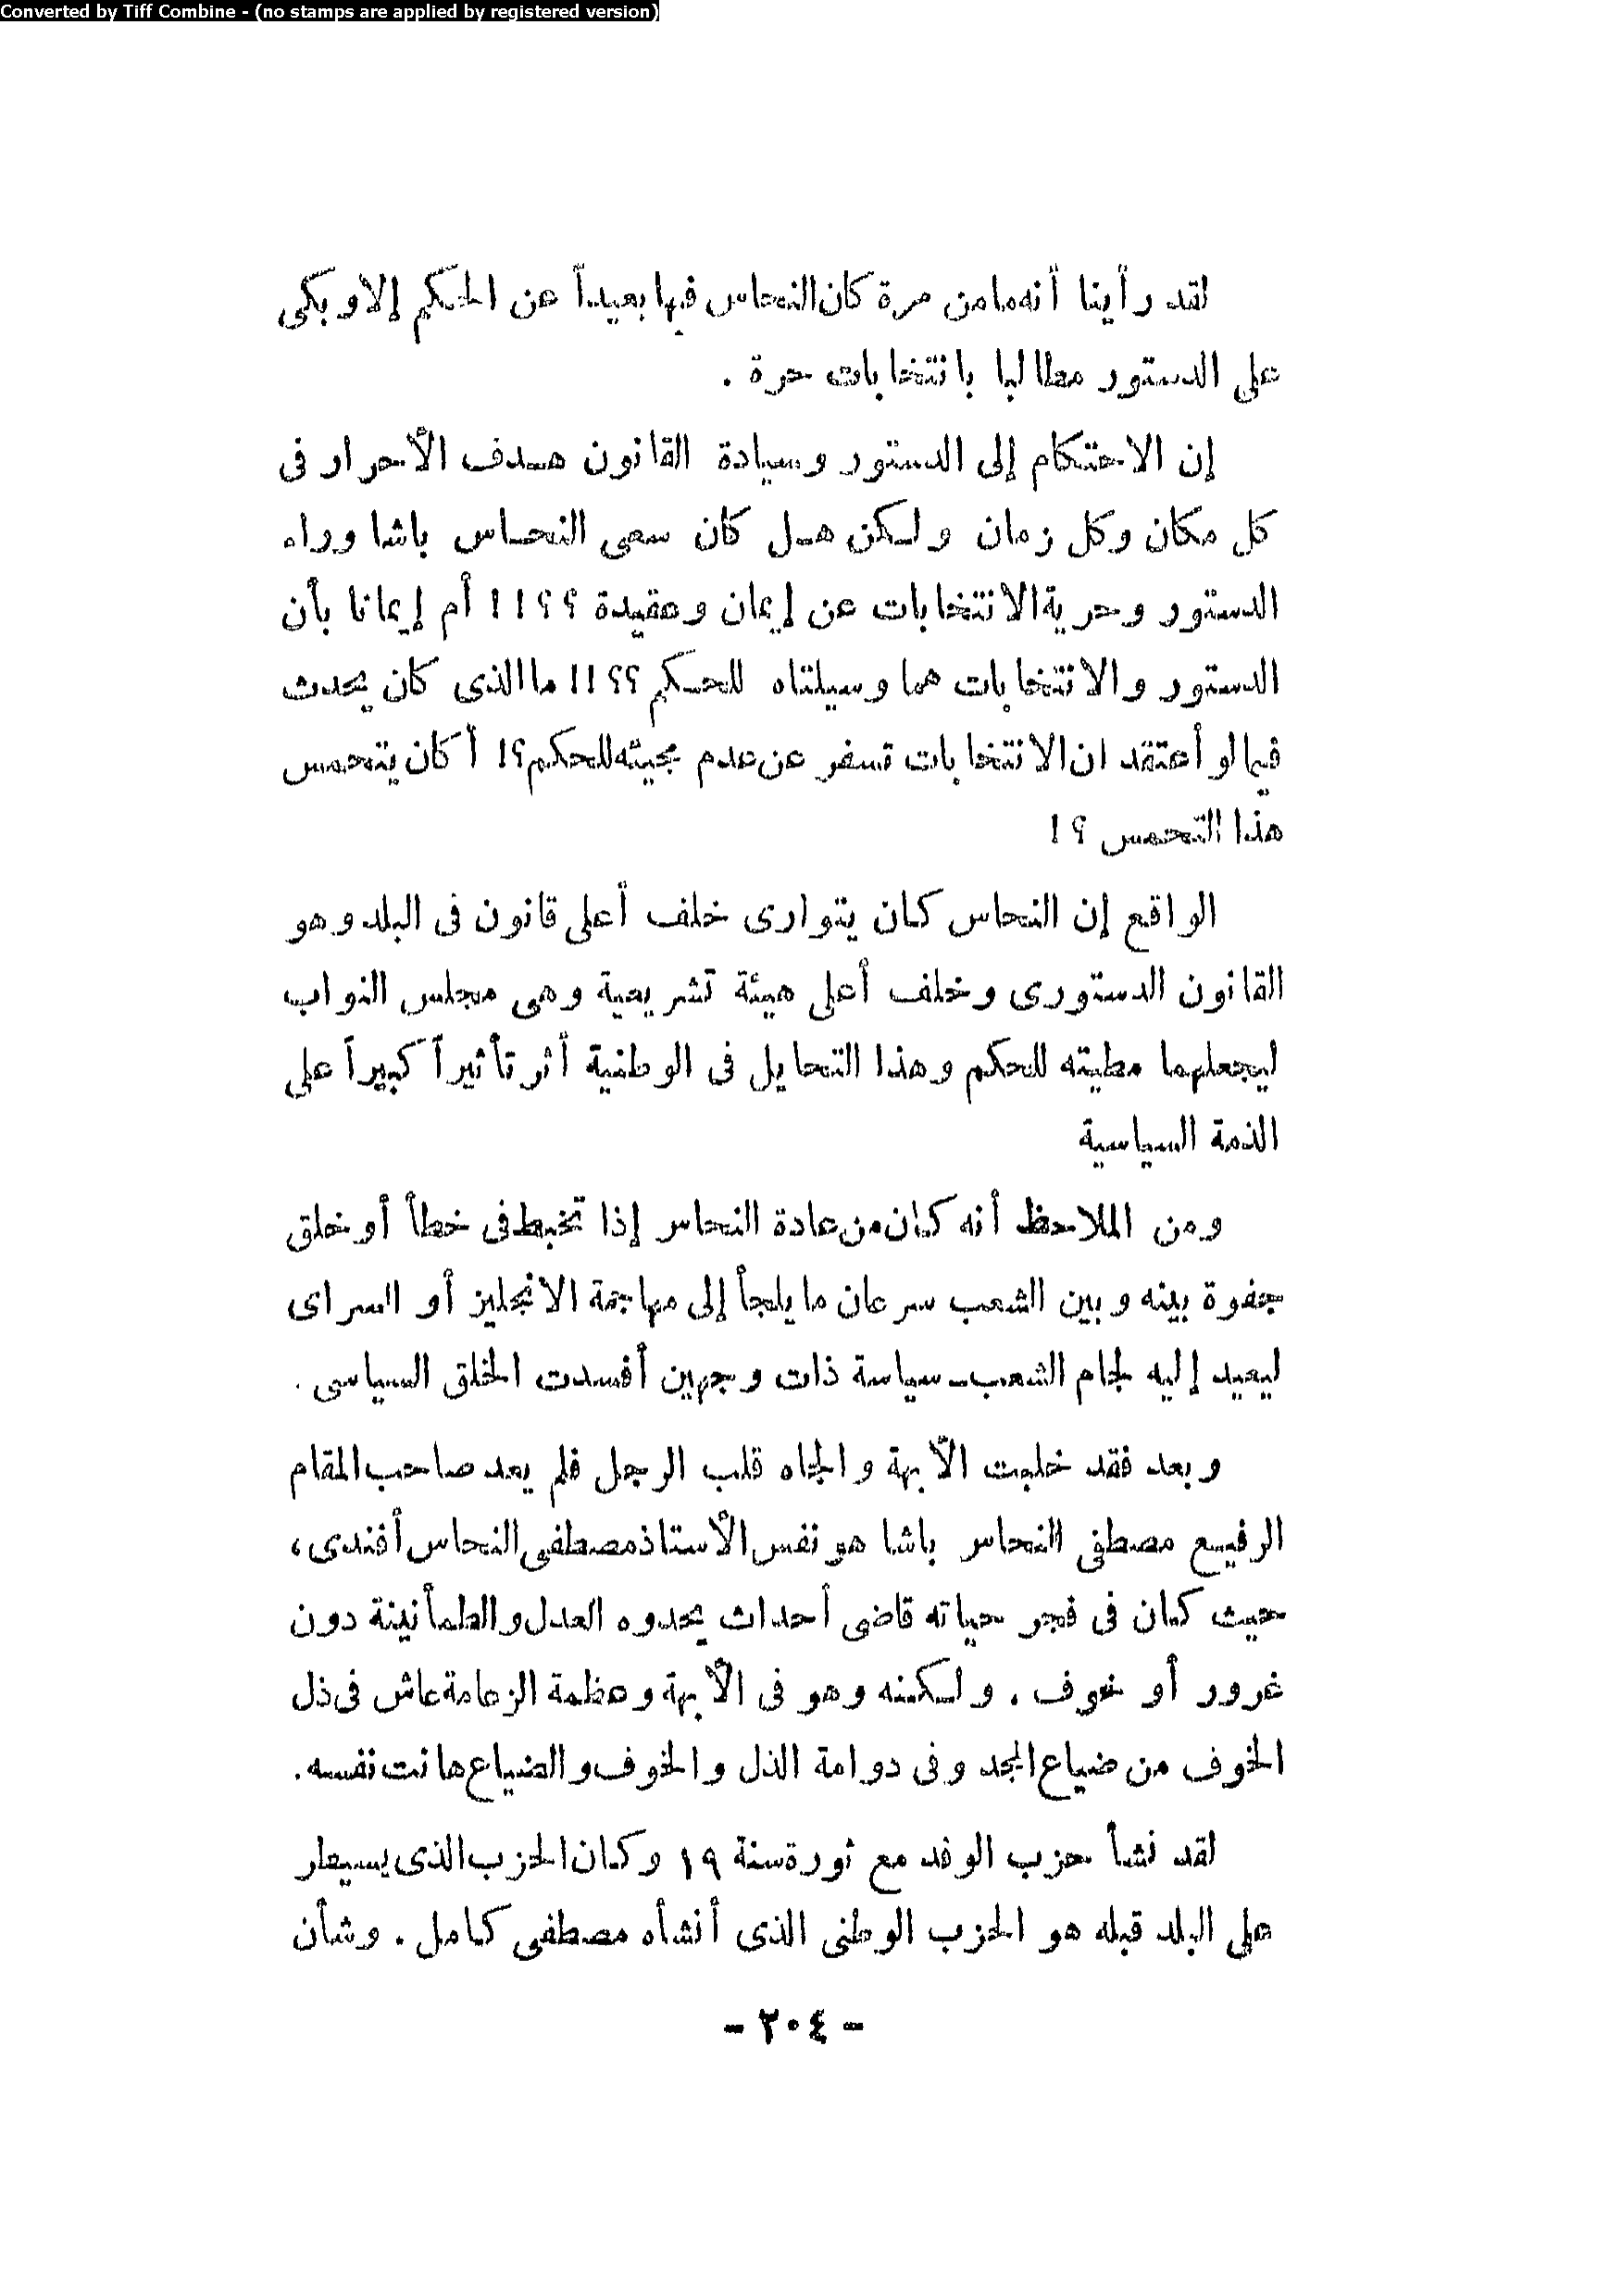 Converted by Tiff Combine - (no stamps are applied by registered version)
لقد رأينا أنه ما من مرة كان النحاس فيها بعيداً عن الحكم إلا وبكى
على الدستور مطالبا بانتخابات حرة .
إن الاحتكام إلى الدستور وسيادة القانون هدف الأحرار فى
كل مكان وكل زمان ولكن هل كان سعى النحاس باشا وراء
الدستور وحرية الانتخابات عن إيمان وعقيدة ؟؟!! أم إيمانا بأن
الدستور والانتخابات هما وسيلتاه للحكم ؟؟!! ما الذى كان يحدث
فيما لو أعتقد ان الانتخابات تسفر عن عدم مجيئه للحكم؟! أكان يتحمس
هذا التحمس ؟!
الواقع إن النحاس كان يتوارى خلف أعلى قانون فى البلد وهو
القانون الدستورى وخلف أعلى هيئة تشريعية وهى مجلس النواب
ليجعلهما مطيته للحكم وهذا التحايل فى الوطنية أثر تأثيراً كبيراً على
الذمة السياسية
ومن الملاحظ أنه كان من عادة النحاس إذا تخبط فى خطأ أو خلق
جفوة بينه وبين الشعب سرعان ما يلجأ إلى مهاجمة الانجليز أو السراى
ليعيد إليه لجام الشعب ــ سياسة ذات وجهين أفسدت الخلق السياسى .
وبعد فقد خلبت الأبهة والجاه قلب الرجل فلم يعد صاحب المقام
الرفيع مصطفى النحاس باشا هو نفس الأستاذ مصطفى النحاس أفندى ،
حيث كان فى فجر حياته قاضى أحداث يحدوه العدل والطمأنينة دون
غرور أو خوف . ولكنه وهو فى الأبهة وعظمة الزعامة عاش فى ذل
الخوف من ضياع المجد وفى دوامة الذل والخوف والضياع هانت نفسه .
لقد نشأ حزب الوفد مع ثورة سنة ١٩ وكان الحزب الذى يسيطر
على البلد قبله هو الحزب الوطنى الذى أنشأه مصطفى كامل . وشأن
- ٢٠٤ -